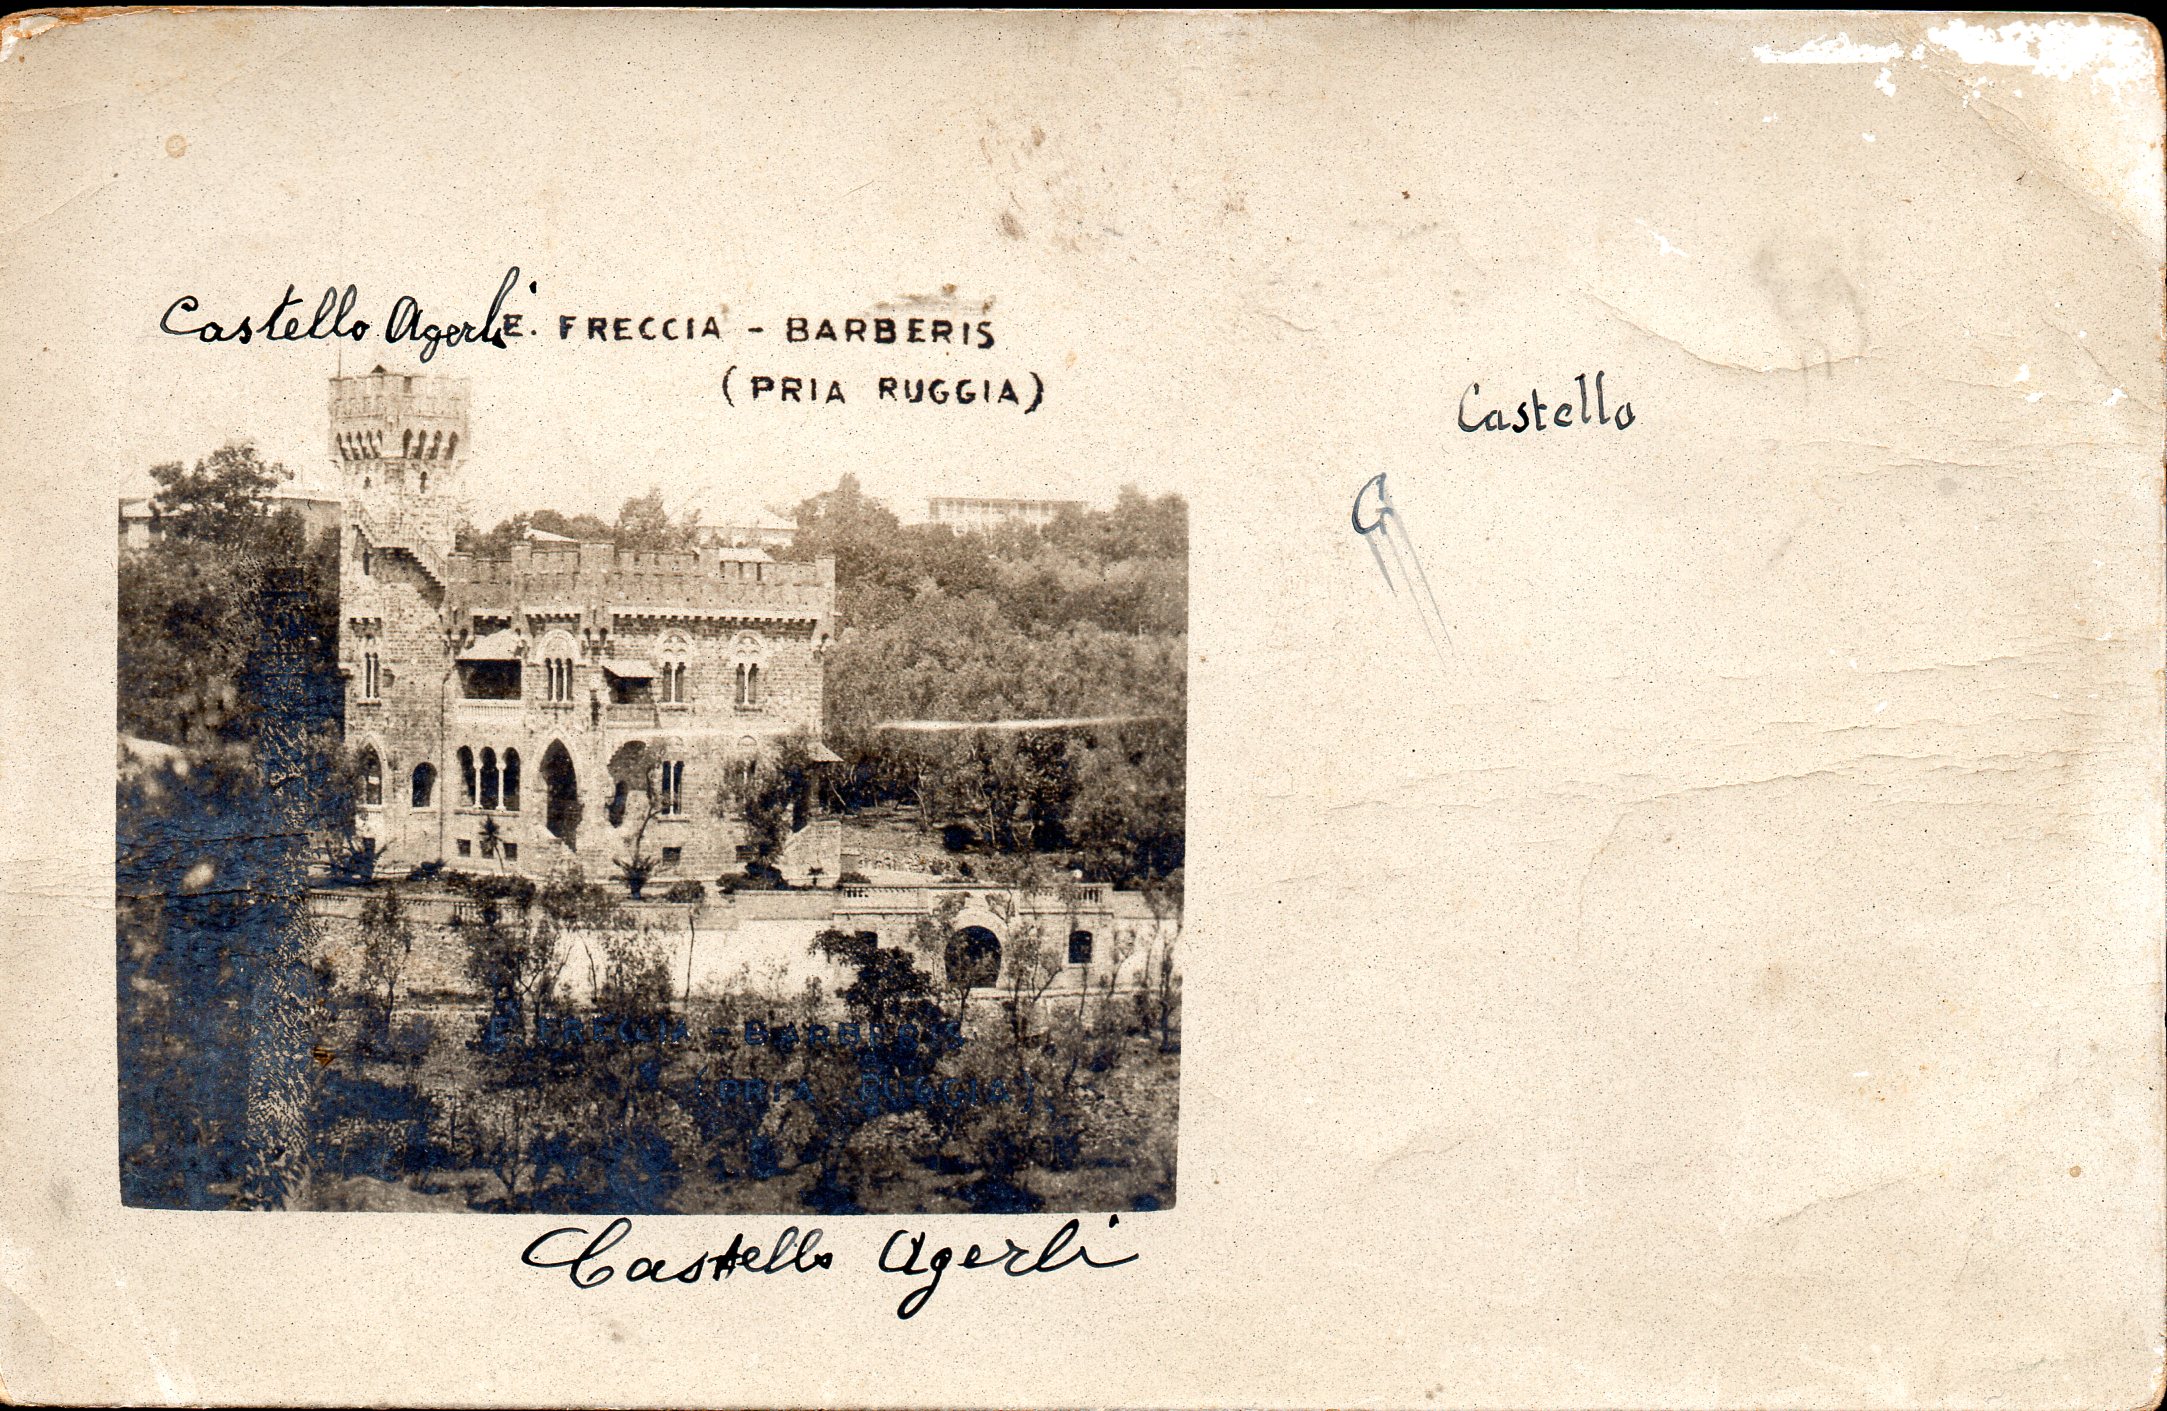 Castello Agerli
E. FRECCIA - BARBERIS
(PRIA RUGGIA)
Castello
G
E. FRECCIA - BARBERIS
(PRIA RUGGIA)
Castello Agerli